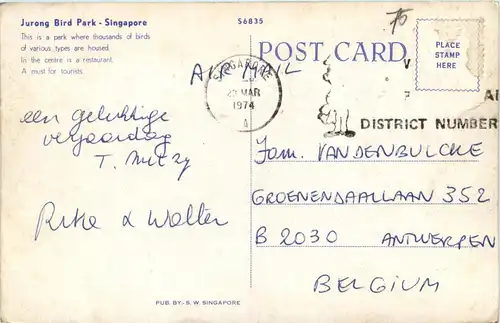 Jurong Bird Park - Singapore
This is a park where thousands of birds
of various types are housed.
In the centre is a restaurant.
A must for tourists.
S6835
POST CARD
PLACE
STAMP
HERE
AIR MAIL
SINGAPORE
MAR
1974
A
DISTRICT NUMBER
een gelukkige
verjaardag
Rika & Walter
Fam. VANDENBULCKE
GROENENDAALLAAN 352
B 2030 ANTWERPEN
BELGIUM
PUB. BY:- S. W. SINGAPORE